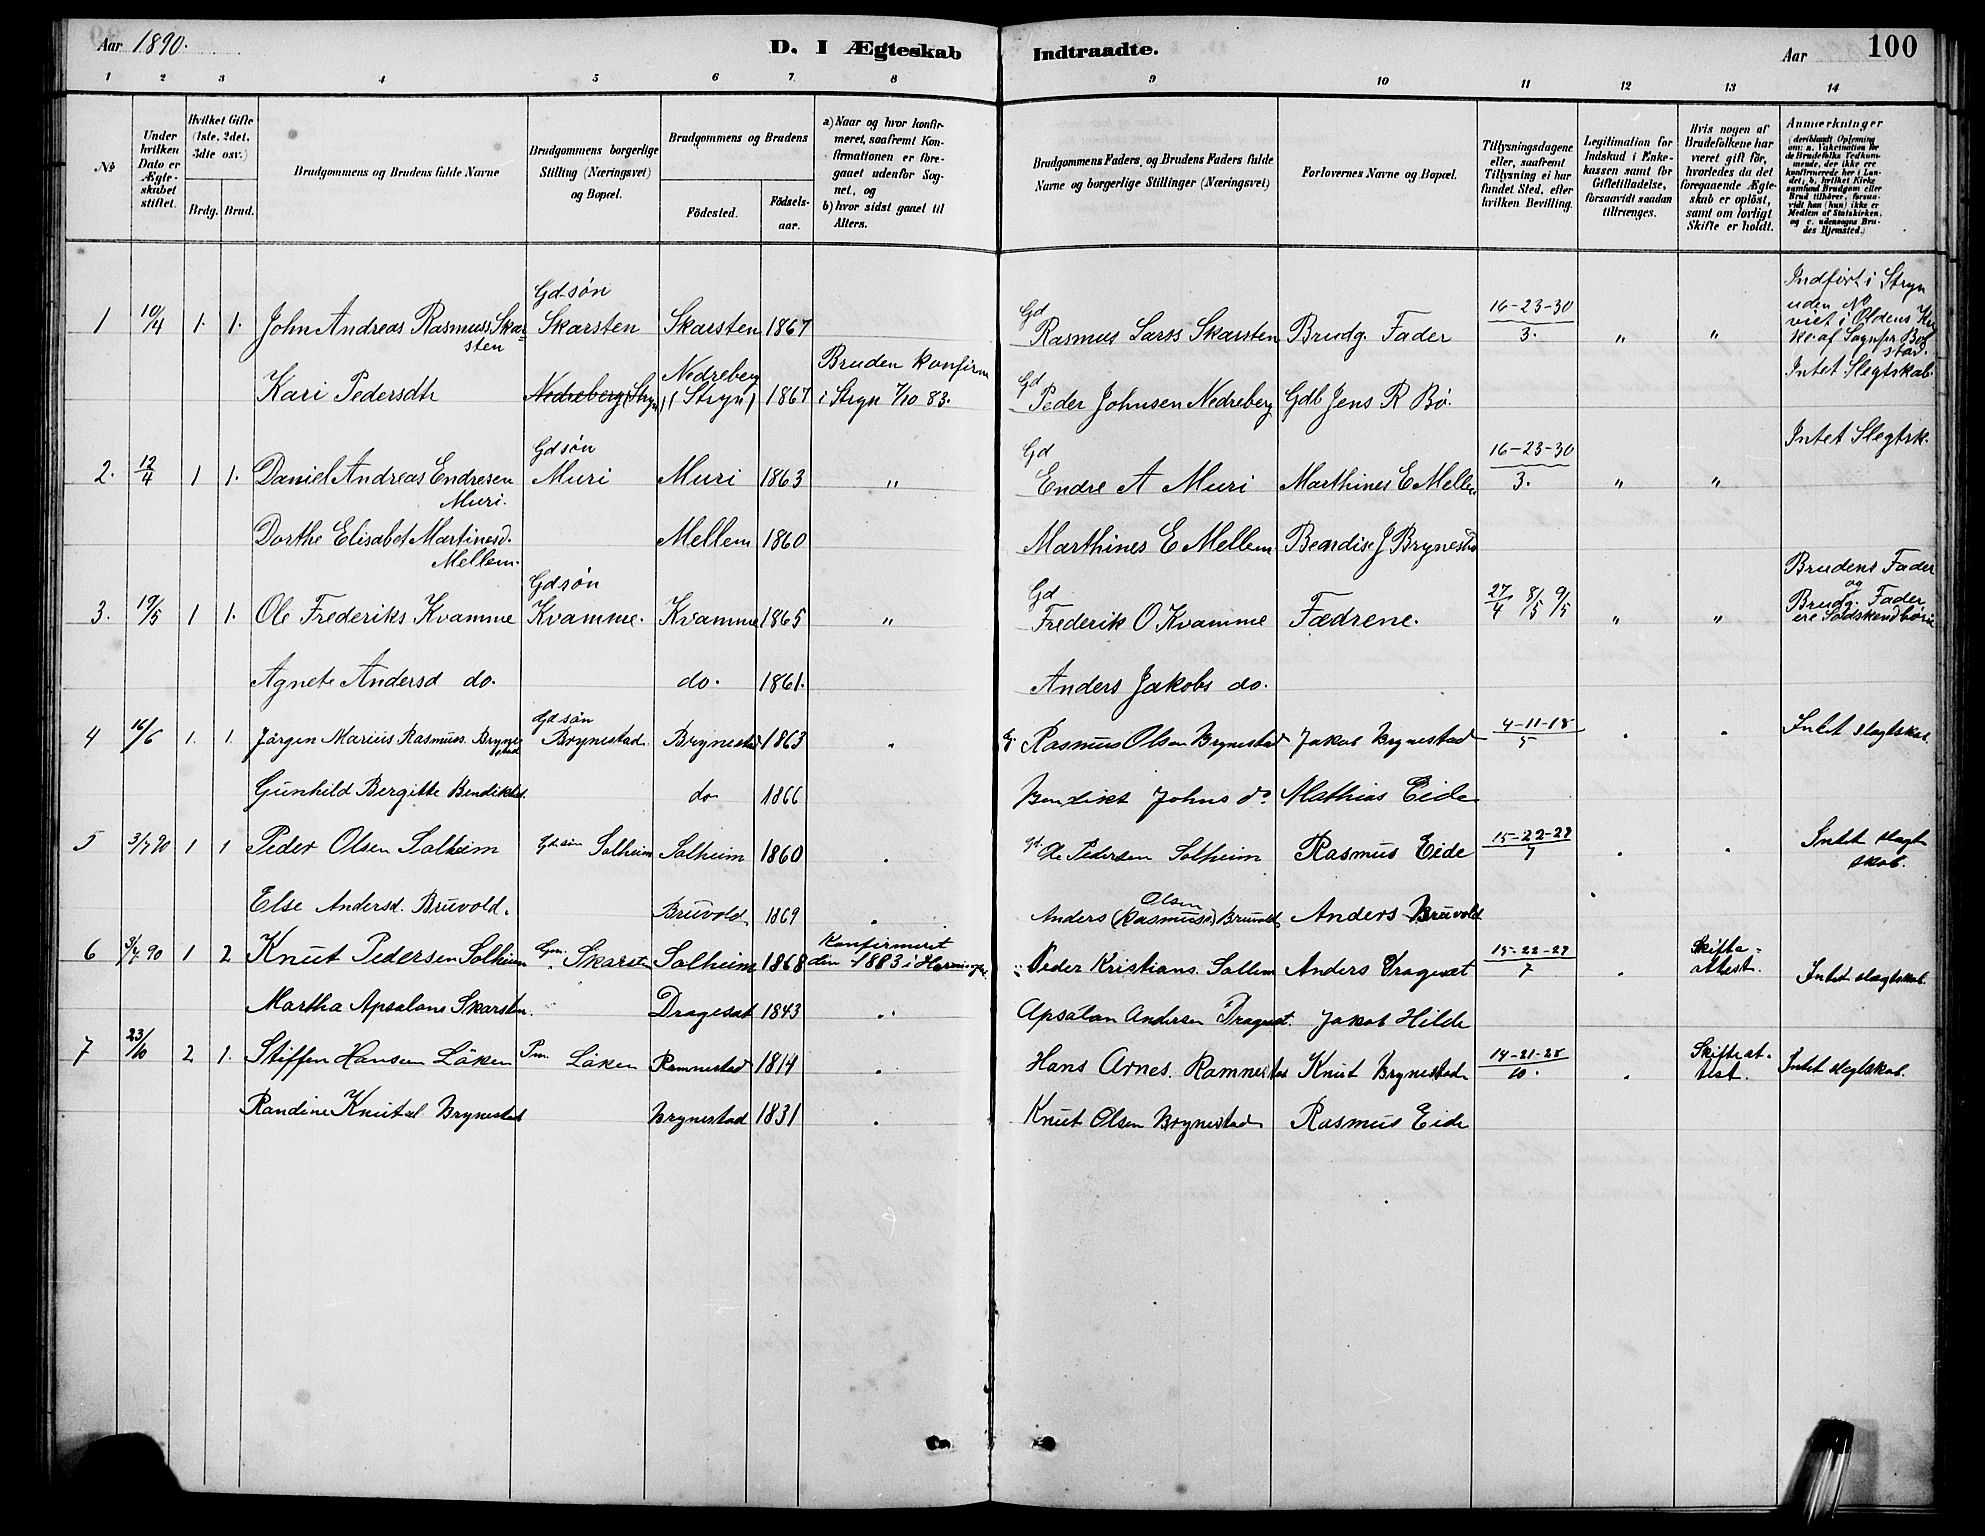 Aar 1890.
D. I Ægteskab Indtraadte.
Aar 100
1 2 3 4 5 6 7 8 9 10 11 12 13 14
No
Under hvilken Dato er Ægteskabet stiftet.
Hvilket Gifte (1ste, 2det, 3die osv.)
Brdg. Brud.
Brudgommens og Brudens fulde Navne
Brudgommens borgerlige Stilling (Næringsvei) og Bopæl.
Brudgommens og Brudens
Födested.
Födselsaar.
a) Naar og hvor konfirmeret, saafremt Konfirmationen er foregaaet udenfor Sognet, og
b) hvor sidst gaaet til Alters.
Brudgommens Faders, og Brudens Faders fulde Navne og borgerlige Stillinger (Næringsvei)
Forlovernes Navne og Bopæl.
Tillysningsdagene eller, saafremt Tillysning ei har fundet Sted, efter hvilken Bevilling.
Legitimation for Indskud i Enkekassen samt for Giftetilladelse, forsaavidt saadan tiltrænges.
Hvis nogen af Brudefolkene har været gift för, hvorledes da det foregaaende Ægteskab er oplöst, samt om lovligt Skifte er holdt.
Anmærkninger (deriblandt Oplysning om: a. Vakcination for de Brudefolks Vedkommende, der ikke ere konfirmerede her i Landet; b. hvilket Kirkesamfund Brudgom eller Brud tilhörer, forsaavidt han (hun) ikke er Medlem af Statskirken, og c. udensogns Brudes Hjemsted.)
1 10/4 1. 1. John Andreas Rasmuss Skarsten Gdsøn Skarsten Skarsten 1867 Gd Rasmus Larss Skarsten Brudg. Fader 16-23-30/3. " " Indført i Stryn uden No viet i Oldens Kirke af Sognepr. Bolstad. Intet Slegtskab.
Kari Pedersdtr Nedreberg (Stryn) Nedreberg (Stryn) 1867 Bruden konfirm i Stryn 7/10 83. Gd Peder Johnsen Nedreberg Gdb Jens R Bø.
2. 12/4 1 1. Daniel Andreas Endresen Muri. Gdsøn Muri Muri 1863 " Gd Endre A Muri Marthines E Mellem 16-23-30/3. " " Intet Slegtsk.
Dorthe Elisabet Martinesd. Mellem. Mellem 1860 Marthines E Mellem Bendise J Brynestad
3. 19/5 1 1. Ole Frederiks Kvamme Gdsøn Kvamme. Kvamme 1865 " Gd Frederik O Kvamme Fædrene. 27/4 8/5 9/5 " " Brudens Fader og Brudg. Fader ere Sødskendbørn
Agnete Andersd do. do. 1861. Anders Jakobs do.
4 16/6 1. 1. Jørgen Marius Rasmuss. Brynestad Gdsøn Brynestad. Brynestad 1863 " Rasmus Olsen Brynestad Jakob Brynestad 4-11-18/5 " " Intet slegtskab.
Gunhild Bergitte Bendiktsd. do 1866 Bendikt Johns do Mathias Eide
5 3/7 90 1 1 Peder Olsen Solheim Gdsøn Solheim Solheim 1860 " Gd. Ole Pedersen Solheim Rasmus Eide 15-22-29/7 " " Intet slegtskab.
Else Andersd. Bruvold. Bruvold 1869 " Anders (Rasmuss) Olsen Bruvold Anders Bruvold
6 3/7 90 1 2 Knut Pedersen Solheim Gm. Skarst Solheim 1868 Konfirmeret den 1883 i Peder Kristians. Solhm Anders Drageset 15-22-29/7 " Skifteattest. Intet slegtskab.
Martha Apsalons Skarsten. Dragesat 1843 " Apsalon Andersen Dragest. Jakob Hilde
7 23/10 2 1. Stiffen Hansen Løken Pm. Løken Ramnestad 1814 " Hans Arnes. Ramnestad Knut Brynestad 14-21-28/10. " Skifteattest. Intet slegtskab.
Randine Knutsd. Brynestad Brynestad 1831 " Knut Olsen Brynestad Rasmus Eide